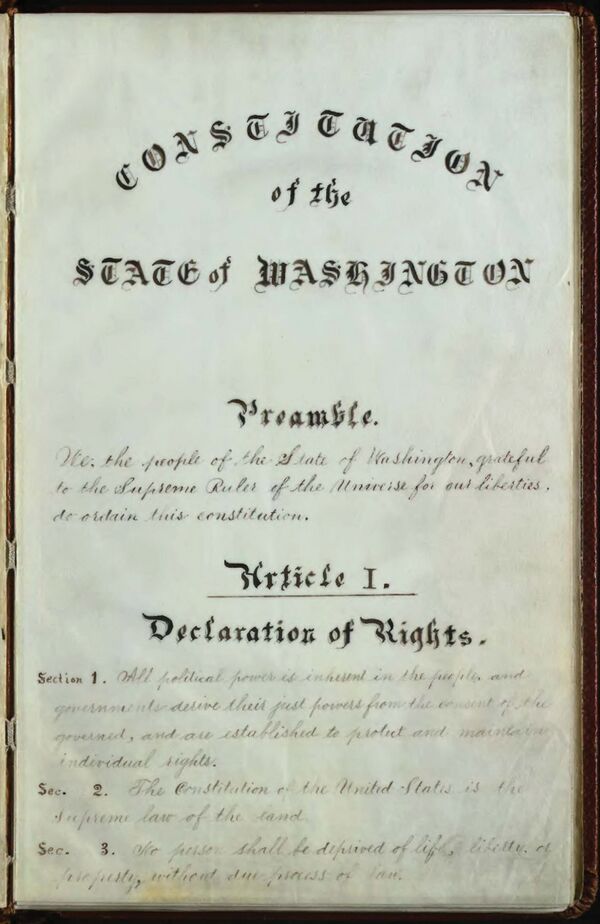 CONSTITUTION
of the
STATE of WASHINGTON
Preamble.
We, the people of the State of Washington, grateful
to the Supreme Ruler of the Universe for our liberties,
do ordain this constitution.
Article I.
Declaration of Rights.
Section 1. All political power is inherent in the people, and
governments derive their just powers from the consent of the
governed, and are established to protect and maintain
individual rights.
Sec. 2. The Constitution of the United States is the
supreme law of the land.
Sec. 3. No person shall be deprived of life, liberty, or
property, without due process of law.